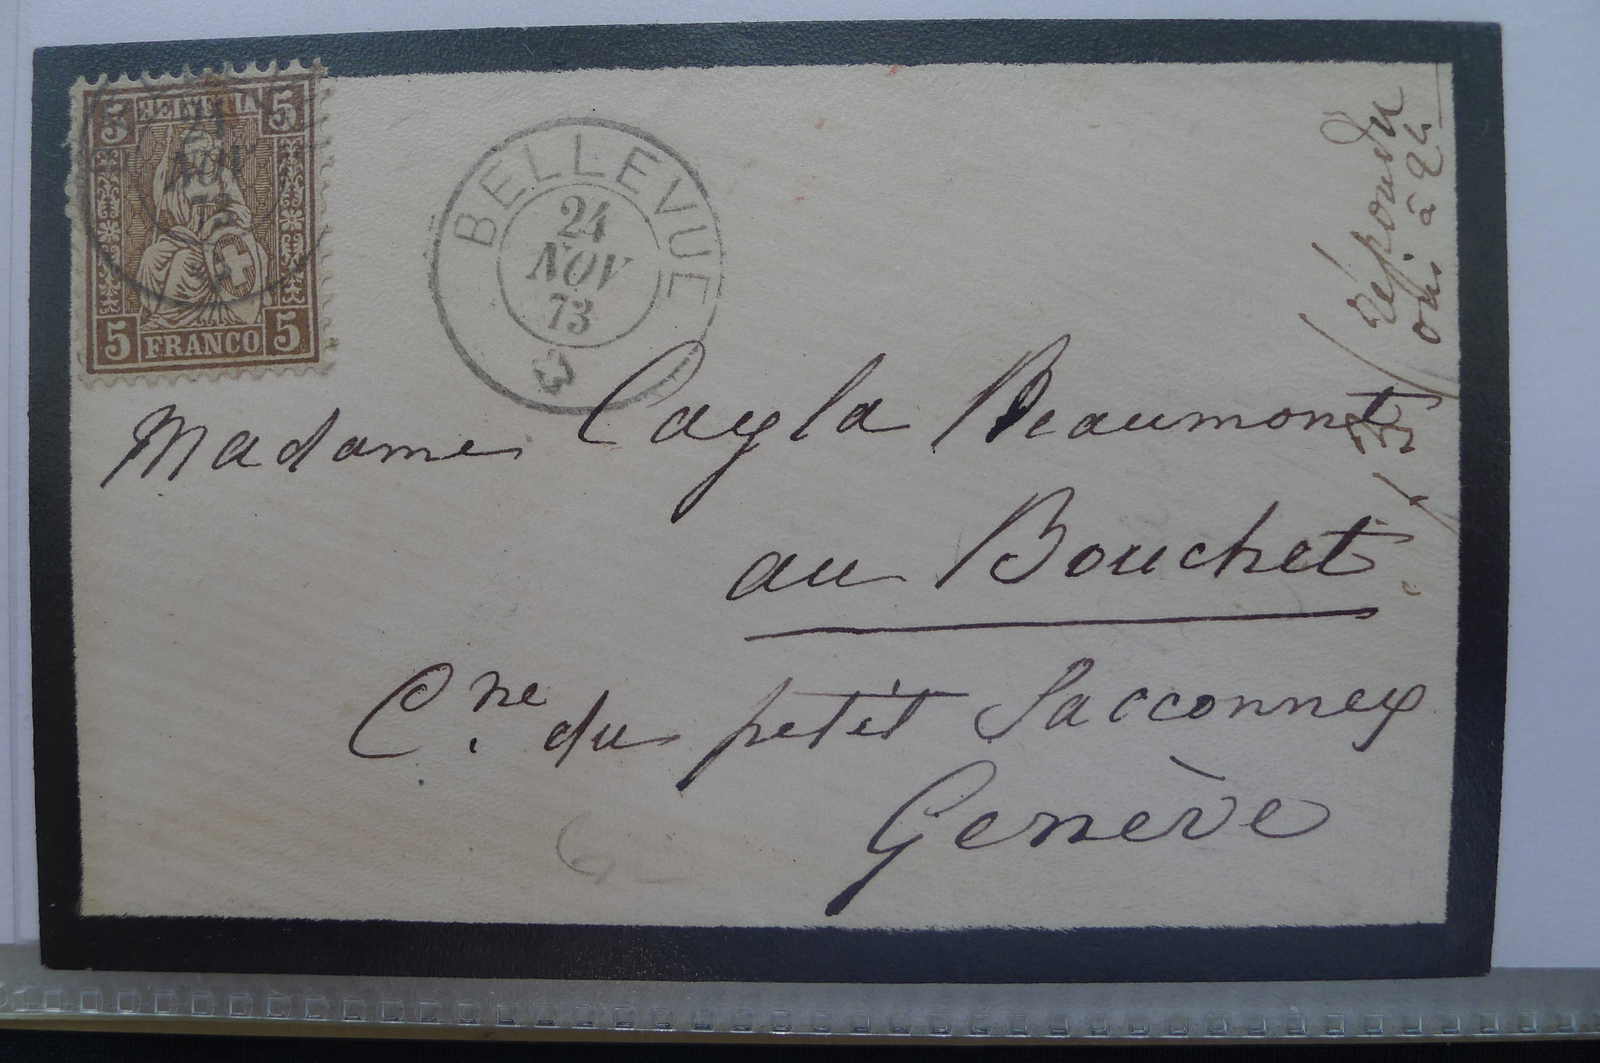 5 HELVETIA 5
24
NOV
73
5 FRANCO 5
BELLEVUE
24
NOV
73
Madame Cayla Beaumont
au Bouchet
Cne. du petit Sacconnex
Genève
répondu
oui à 2 h